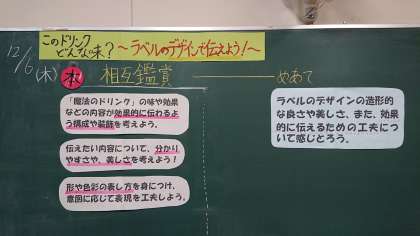 このドリンク
どんな味?
～ラベルのデザインで伝えよう!～
12/6(木)
本 相互鑑賞
めあて
「魔法のドリンク」の味や効果
などの内容が効果的に伝わるよ
う構成や装飾を考えよう。
伝えたい内容について、分かり
やすさや、美しさを考えよう!
形や色彩の表し方を身につけ、
意図に応じて表現を工夫しよう。
ラベルのデザインの造形的
な良さや美しさ、また、効果
的に伝えるための工夫につ
いて感じとろう。